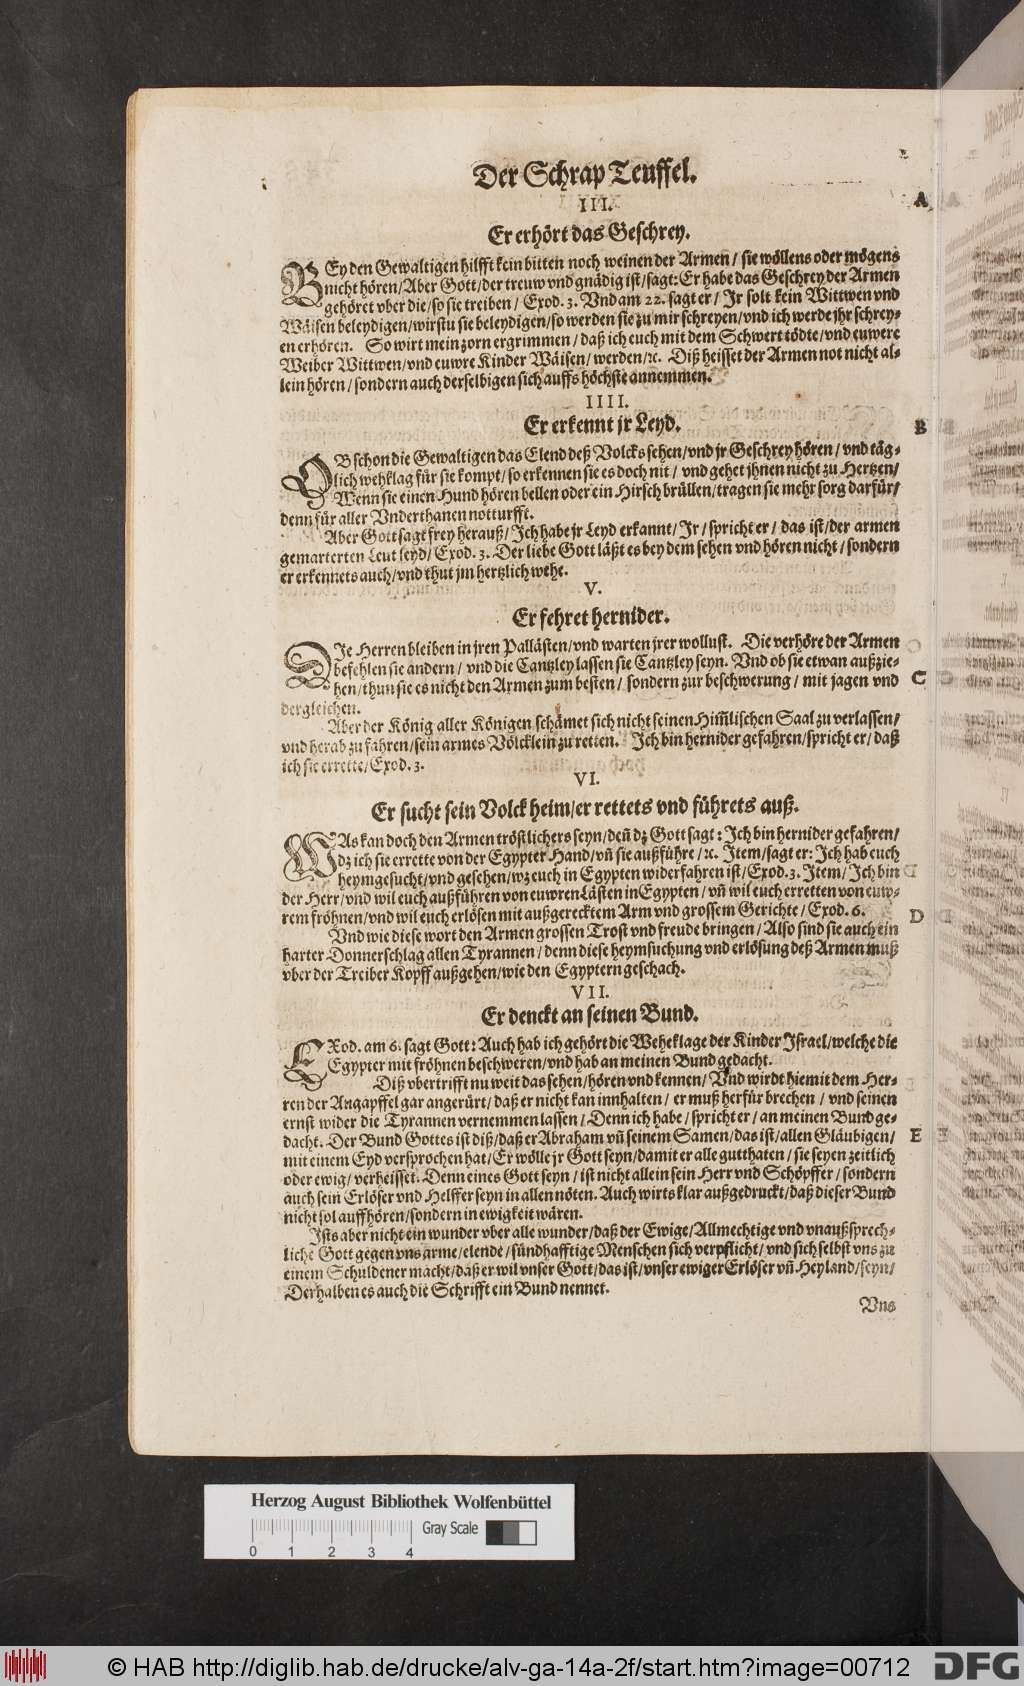 Der Schrap Teuffel.
III.
Er erhört das Geschrey.
BEy den Gewaltigen hilfft kein bitten noch weinen der Armen / sie wöllens oder mögens
nicht hören / Aber Gott / der treuw vnd gnädig ist / sagt: Er habe das Geschrey der Armen
gehöret vber die / so sie treiben / Exod. 3. Vnd am 22. sagt er / Jr solt kein Wittwen vnd
Wäisen beleydigen / wirstu sie beleydigen / so werden sie zu mir schreyen / vnd ich werde jhr schrey-
en erhören. So wirt mein zorn ergrimmen / daß ich euch mit dem Schwert tödte / vnd euwere
Weiber Wittwen / vnd euwre Kinder Wäisen / werden / ꝛc. Diß heisset der Armen not nicht al-
lein hören / sondern auch derselbigen sich auffs höchste annemmen.
IIII.
Er erkennt jr Leyd.
OB schon die Gewaltigen das Elend deß Volcks sehen / vnd jr Geschrey hören / vnd täg-
lich wehklag für sie kompt / so erkennen sie es doch nit / vnd gehet jhnen nicht zu Hertzen /
Wenn sie einen Hund hören bellen oder ein Hirsch brüllen / tragen sie mehr sorg darfür /
denn für aller Vnderthanen notturfft.
Aber Gott sagt frey herauß / Jch habe jr Leyd erkannt / Jr / spricht er / das ist / der armen
gemarterten Leut leyd / Exod. 3. Der liebe Gott läßt es bey dem sehen vnd hören nicht / sondern
er erkennets auch / vnd thut jm hertzlich wehe.
V.
Er fehret hernider.
DJe Herren bleiben in jren Pallästen / vnd warten jrer wollust. Die verhöre der Armen
befehlen sie andern / vnd die Cantzley lassen sie Cantzley seyn. Vnd ob sie etwan außzie-
hen / thun sie es nicht den Armen zum besten / sondern zur beschwerung / mit jagen vnd
dergleichen.
Aber der König aller Königen schämet sich nicht seinen Him̃lischen Saal zu verlassen /
vnd herab zu fahren / sein armes Völcklein zu retten. Jch bin hernider gefahren / spricht er / daß
ich sie errette / Exod. 3.
VI.
Er sucht sein Volck heim / er rettets vnd führets auß.
WAs kan doch den Armen tröstlichers seyn / deñ dz Gott sagt: Jch bin hernider gefahren /
dz ich sie errette von der Egypter Hand / vñ sie außführe / ꝛc. Jtem / sagt er: Jch hab euch
heymgesucht / vnd gesehen / wz euch in Egypten widerfahren ist / Exod. 3. Jtem / Jch bin
der Herr / vnd wil euch außführen von euwren Lästen in Egypten / vñ wil euch erretten von euw-
rem fröhnen / vnd wil euch erlösen mit außgerecktem Arm vnd grossem Gerichte / Exod. 6.
Vnd wie diese wort den Armen grossen Trost vnd freude bringen / Also sind sie auch ein
harter Donnerschlag allen Tyrannen / denn diese heymsuchung vnd erlösung deß Armen muß
vber der Treiber Kopff außgehen / wie den Egyptern geschach.
VII.
Er denckt an seinen Bund.
EXod. am 6. sagt Gott: Auch hab ich gehört die Weheklage der Kinder Jsrael / welche die
Egypter mit fröhnen beschweren / vnd hab an meinen Bund gedacht.
Diß vbertrifft nu weit das sehen / hören vnd kennen / Vnd wirdt hiemit dem Her-
ren der Augapffel gar angerürt / daß er nicht kan innhalten / er muß herfür brechen / vnd seinen
ernst wider die Tyrannen vernemmen lassen / Denn ich habe / spricht er / an meinen Bund ge-
dacht. Der Bund Gottes ist diß / daß er Abraham vñ seinem Samen / das ist / allen Gläubigen /
mit einem Eyd versprochen hat / Er wölle jr Gott seyn / damit er alle gutthaten / sie seyen zeitlich
oder ewig / verheisset. Denn eines Gott seyn / ist nicht allein sein Herr vnd Schöpffer / sondern
auch sein Erlöser vnd Helffer seyn in allen nöten. Auch wirts klar außgedruckt / daß dieser Bund
nicht sol auffhören / sondern in ewigkeit wären.
Jsts aber nicht ein wunder vber alle wunder / daß der Ewige / Allmechtige vnd vnaußsprech-
liche Gott gegen vns arme / elende / sündhafftige Menschen sich verpflicht / vnd sich selbst vns zu
einem Schuldener macht / daß er wil vnser Gott / das ist / vnser ewiger Erlöser vñ Heyland / seyn /
Derhalben es auch die Schrifft ein Bund nennet.
Vns
A
B
C
D
E
Herzog August Bibliothek Wolfenbüttel
Gray Scale
0 1 2 3 4
© HAB http://diglib.hab.de/drucke/alv-ga-14a-2f/start.htm?image=00712
DFG